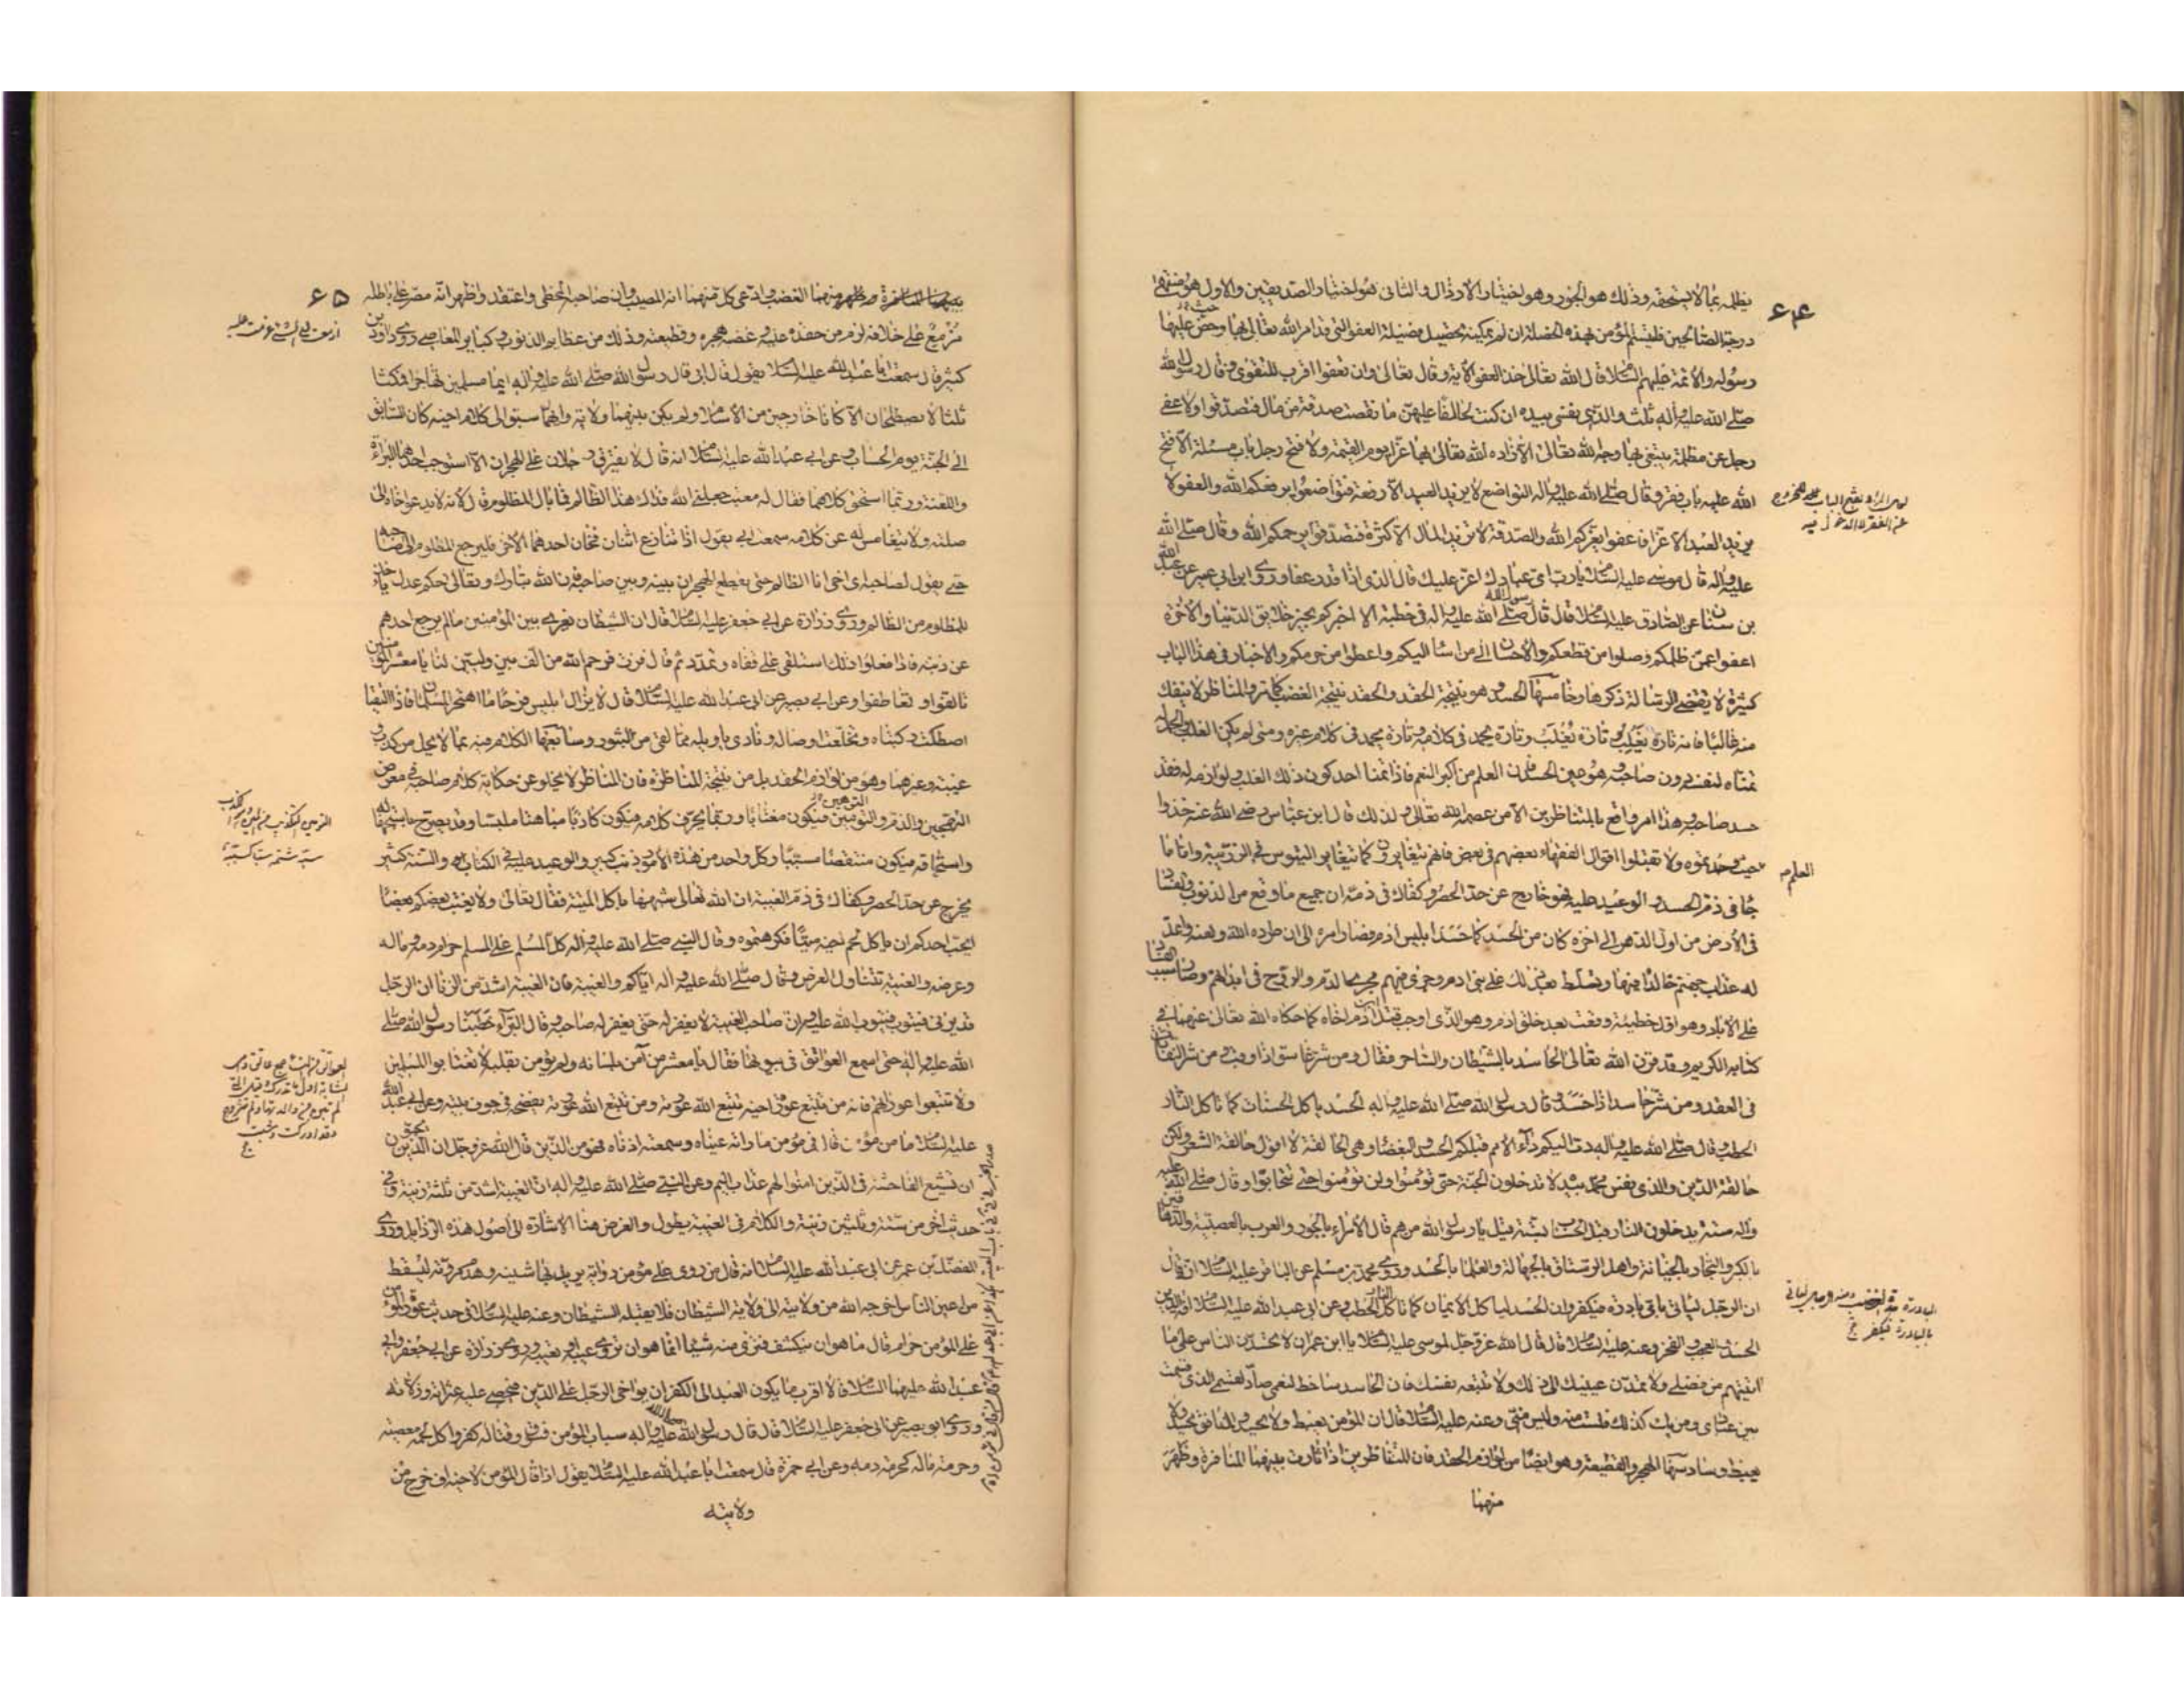 ٦٤
يظلمه بما لا يستحقه وذلك هو الجور وهو اختيار الارذال والثانى هو اختيار الصديقين والاول هو منتهى
درجة الصالحين فليتسم المؤمن بهذه الخصلة ان لم يمكنه تحصيل فضيلة العفو التى قد امر الله تعالى بها وحض عليها
رسوله والائمة عليهم السلام قال الله تعالى خذ العفو الاية وقال تعالى وان تعفوا اقرب للتقوى وقال رسول الله
صلى الله عليه وآله ثلث والذى نفسى بيده ان كنت لحالفا عليهن ما نقصت صدقة من مال فتصدقوا ولا عفى
رجل عن مظلمة يبتغى بها وجه الله تعالى الا زاده الله تعالى بها عزا يوم القيمة ولا فتح رجل باب مسئلة الا فتح
الله عليه باب فقر وقال صلى الله عليه وآله التواضع لا يزيد العبد الا رفعة فتواضعوا يرفعكم الله والعفو لا
يزيد العبد الا عزا فاعفوا يعزكم الله والصدقة لا تزيد المال الا كثرة فتصدقوا يرحمكم الله وقال صلى الله
عليه وآله قال موسى عليه السلام يا رب اى عبادك اعز عليك قال الذى اذا قدر عفا وروى ابن ابى عمير عن عبد الله
بن سنان عن الصادق عليه السلام قال قال رسول الله صلى الله عليه وآله فى خطبة الا اخبركم بخير خلائق الدنيا والاخرة
اعفوا عمن ظلمكم وصلوا من قطعكم والاحسان الى من اساء اليكم واعطوا من حرمكم والاخبار فى هذا الباب
كثيرة لا يقتضى الرسالة ذكرها وخامسها الحسد وهو نتيجة الحقد والحقد نتيجة الغضب كما مر والمناظر لا ينفك
منه غالبا فانه تارة يغلب وتارة يُغلب وتارة يحمد فى كلامه وتارة يحمد فى كلام غيره ومتى لم يكن الغلب والحمد له
تمناه لنفسه دون صاحبه وهو عين الحسد فان العلم من اكبر النعم فاذا تمنا احد كون ذلك الغلب ولوازمه له فقد
حسد صاحبه وهذا امر واقع بالمتناظرين الا من عصمه الله تعالى ولذلك قال ابن عباس رضى الله عنه خذوا
حيث وجدتموه ولا تقبلوا اقوال الفقهاء بعضهم فى بعض فانهم يتغايرون كما يتغاير التيوس فى الزريبة واما ما
جاء فى ذم الحسد والوعيد عليه فهو خارج عن حد الحصر وكفاك فى ذمه ان جميع ما وقع من الذنوب والفساد
فى الارض من اول الدهر الى اخره كان من الحسد لما حسد ابليس ادم فصار امره الى ان طرده الله ولعنه واعد
له عذاب جهنم خالدا فيها وتسلط بعد ذلك على بنى ادم وجرى فيهم مجرى الدم والروح فى ابدانهم وصار سبب الفساد
على الاباد وهو اول خطيئة وقعت بعد خلق ادم وهو الذى اوجب قتل ابن ادم اخاه كما حكاه الله تعالى عنهما فى
كتابه الكريم وقد قرن الله تعالى الحاسد بالشيطان والساحر فقال ومن شر غاسق اذا وقب ومن شر النفاثات
فى العقد ومن شر حاسد اذا حسد وقال رسول الله صلى الله عليه وآله الحسد ياكل الحسنات كما تاكل النار
الحطب وقال صلى الله عليه وآله دب اليكم داء الامم قبلكم الحسد والبغضاء وهى الحالقة لا اقول حالقة الشعر ولكن
حالقة الدين والذى نفس محمد بيده لا تدخلون الجنة حتى تؤمنوا ولن تؤمنوا حتى تتحابوا وقال صلى الله عليه
وآله ستة يدخلون النار قبل الحساب بسنة قيل يا رسول الله من هم قال الامراء بالجور والعرب بالعصبية والدهاقين
بالكبر والتجار بالخيانة واهل الرستاق بالجهالة والعلماء بالحسد وروى محمد بن مسلم عن الباقر عليه السلام انه قال
ان الرجل لياتى باى بادرة فيكفر وان الحسد لياكل الايمان كما تاكل النار الحطب وعن ابى عبد الله عليه السلام افة الدين
الحسد والعجب والفخر وعنه عليه السلام قال قال الله عز وجل لموسى عليه السلام يا ابن عمران لا تحسدن الناس على ما
اتيتهم من فضلى ولا تمدن عينيك الى ذلك ولا تتبعه نفسك فان الحاسد ساخط لنعمى صاد لقسمى الذى قسمت
بين عبادى ومن يك كذلك فلست منه وليس منى وعنه عليه السلام قال ان المؤمن يغبط ولا يحسد والمنافق يحسد ولا
يغبط وسادسها الهجر والقطيعة وهو ايضا من لوازم الحقد فان المتناظرين اذا ثارت بينهما المنافرة وظهر
منهما
العلم ص
٦٥
بينهما المنافرة وظهر منهما الغضب وادعى كل منهما انه المصيب وان صاحبه المخطى واعتقد واظهر انه مصر على باطله
مزمع على خلافه لزم من حقده عليه وغضبه هجره وقطيعته وذلك من عظايم الذنوب وكباير المعاصى روى داود بن
كثير قال سمعت ابا عبد الله عليه السلام يقول قال ابى قال رسول الله صلى الله عليه وآله ايما مسلمين تهاجرا فمكثا
ثلثا لا يصطلحان الا كانا خارجين من الاسلام ولم يكن بينهما ولاية وايهما سبق الى كلام اخيه كان السابق
الى الجنة يوم الحساب وعن ابى عبد الله عليه السلام انه قال لا يفترق رجلان على الهجران الا استوجب احدهما البراءة
واللعنة وربما استحق كلاهما فقال له معتب جعلنى الله فداك هذا الظالم فما بال المظلوم قال لانه لا يدعو اخاه الى
صلته ولا يتغامس له عن كلامه سمعت ابى يقول اذا تنازع اثنان فعاز احدهما الاخر فليرجع المظلوم الى صاحبه
حتى يقول لصاحبه اى اخى انا الظالم حتى يقطع الهجران بينه وبين صاحبه فان الله تبارك وتعالى حكم عدل ياخذ
للمظلوم من الظالم وروى زرارة عن ابى جعفر عليه السلام قال ان الشيطان يغرى بين المؤمنين ما لم يرجع احدهم
عن دينه فاذا فعلوا ذلك استلقى على قفاه وتمدد ثم قال فزت فرحم الله من الف بين وليين لنا يا معشر المؤمنين
تالفوا وتعاطفوا وعن ابى بصير عن ابى عبد الله عليه السلام قال لا يزال ابليس فرحا ما اهتجر المسلمان فاذا التقيا
اصطكت ركبتاه وتخلعت اوصاله ونادى يا ويله مما لقى من الثبور وسابعها الكلام فيه بما لا يحل من كذب
غيبة وغيرهما وهو من لوازم الحقد بل من نتيجة المناظرة فان المناظر لا يخلو عن حكاية كلام صاحبه فى معرض
التهجين والذم والتوهين فيكون مغتابا وربما يحرف كلامه فيكون كاذبا مباهتا ملبسا وقد يصرح باستجهاله
واستحماقه فيكون متنقصا مسببا وكل واحد من هذه الامور ذنب كبير والوعيد عليه فى الكتاب والسنة كثير
يخرج عن حد الحصر وكفاك فى ذم الغيبة ان الله تعالى شبهها باكل الميتة فقال تعالى ولا يغتب بعضكم بعضا
ايحب احدكم ان ياكل لحم اخيه ميتا فكرهتموه وقال النبى صلى الله عليه وآله كل المسلم على المسلم حرام دمه وماله
وعرضه والغيبة تتناول العرض وقال صلى الله عليه وآله اياكم والغيبة فان الغيبة اشد من الزنا ان الرجل
قد يزنى فيتوب فيتوب الله عليه وان صاحب الغيبة لا يغفر له حتى يغفر له صاحبه وقال البراء خطبنا رسول الله صلى
الله عليه وآله حتى اسمع العواتق فى بيوتها فقال يا معشر من آمن بلسانه ولم يؤمن بقلبه لا تغتابوا المسلمين
ولا تتبعوا عوراتهم فانه من تتبع عورة اخيه تتبع الله عورته ومن تتبع الله عورته يفضحه فى جوف بيته وعن ابى عبد الله
عليه السلام ما من مؤمن قال فى مؤمن ما راته عيناه وسمعته اذناه فهو من الذين قال الله عز وجل ان الذين يحبون
ان تشيع الفاحشة فى الذين امنوا لهم عذاب اليم وعن النبى صلى الله عليه وآله ان الغيبة اشد من ثلثة زنية وفى
حديث اخر من ستة وثلثين زنية والكلام فى الغيبة يطول والغرض هنا الاشارة الى اصول هذه الرذايل وروى
المفضل بن عمر عن ابى عبد الله عليه السلام انه قال من روى على مؤمن رواية يريد بها شينه وهدم مروته ليسقط
من اعين الناس اخرجه الله من ولايته الى ولاية الشيطان فلا يقبله الشيطان وعنه عليه السلام فى حديث عورة المؤمن
على المؤمن حرام قال ما هو ان ينكشف فترى منه شيئا انما هو ان تروى عليه او تعيبه وروى زرارة عن ابى جعفر وابى
عبد الله عليهما السلام قالا اقرب ما يكون العبد الى الكفر ان يواخى الرجل على الدين فيحصى عليه عثراته وزلاته
وروى ابو بصير عن ابى جعفر عليه السلام قال قال رسول الله صلى الله عليه وآله سباب المؤمن فسوق وقتاله كفر واكل لحمه معصية
وحرمة ماله كحرمة دمه وعن ابى حمزة قال سمعت ابا عبد الله عليه السلام يقول اذا قال المؤمن لاخيه اف خرج من
ولايته